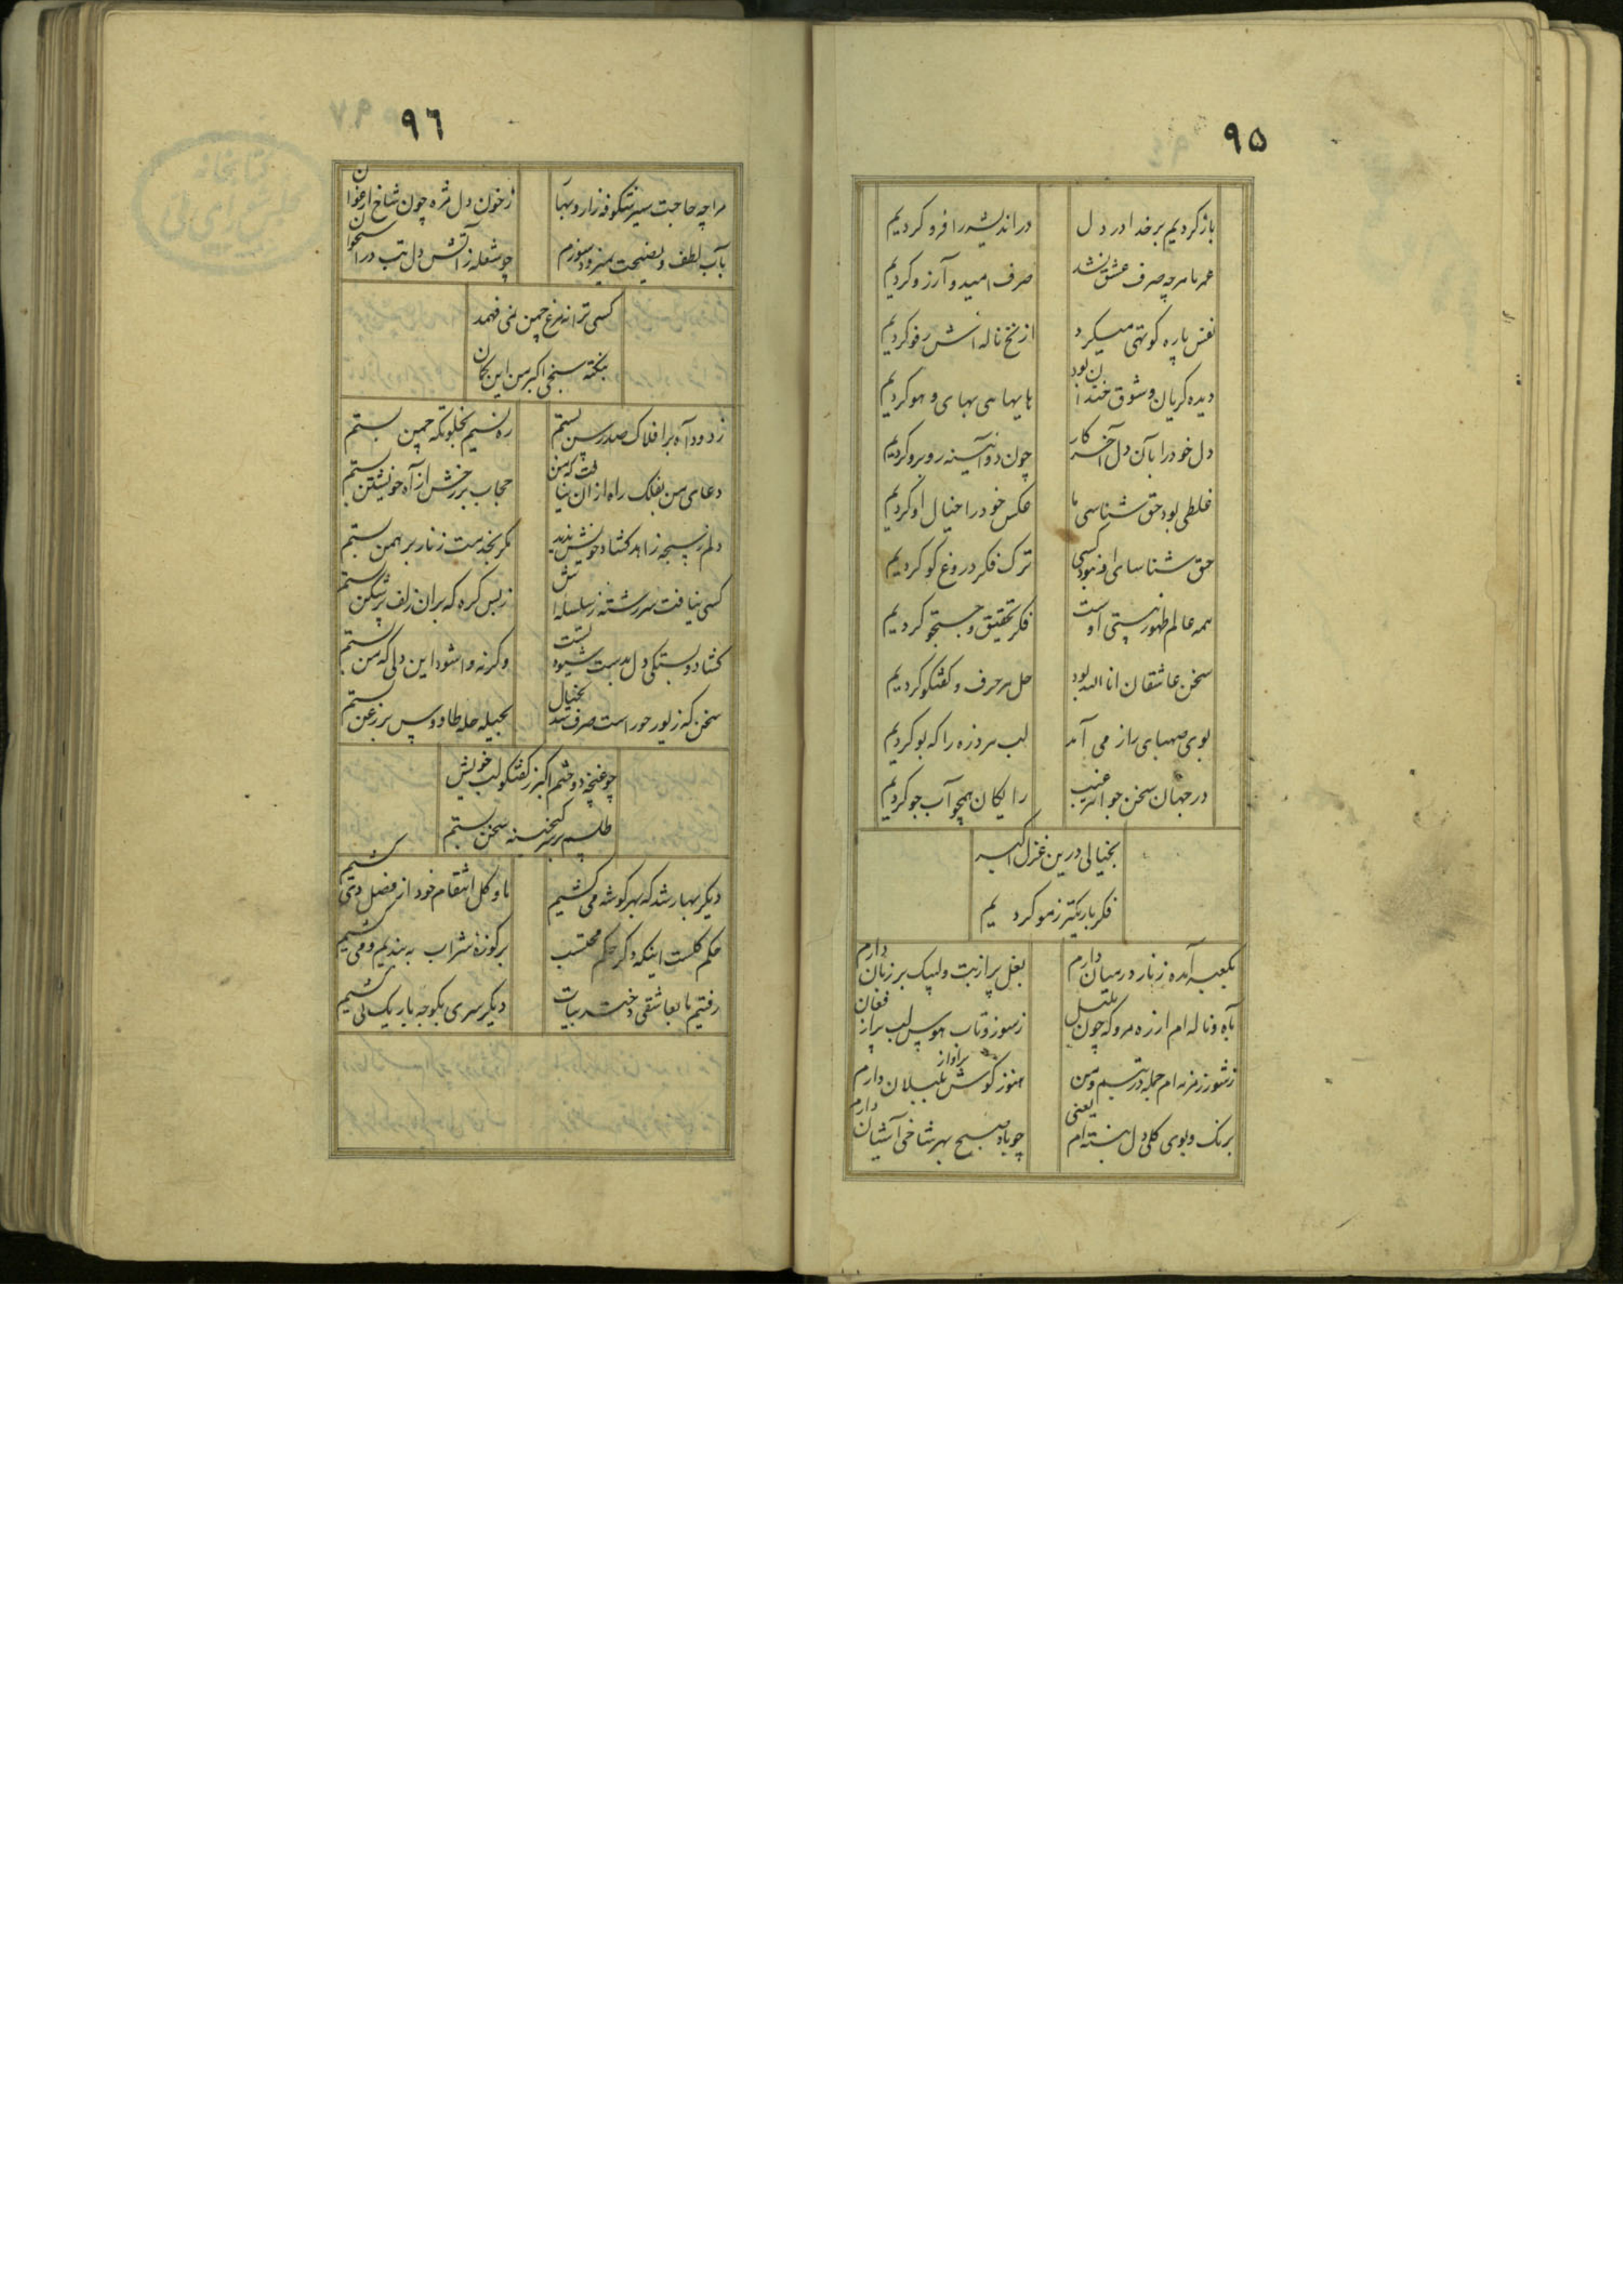 ۹۵
باز کردیم بر خدا در دل
در اندیشه را فرو کردیم
عمر ما هرچه صرف عشق نشد
صرف امید و آرزو کردیم
نفس پاره کوتهی میکرد
از نخ ناله اش رفو کردیم
دیده کریان و شوق خندان بود
هایهایی بهای و هو کردیم
دل خود را بآن دل آخر کار
چون دو آئینه روبرو کردیم
غلطی بود حق شناسی ما
عکس خود را خیال او کردیم
حق شناسای او نبود کسی
ترک فکر دروغ کو کردیم
همه عالم ظهور هستی اوست
فکر تحقیق و جستجو کردیم
سخن عاشقان انا الله بود
حل هر حرف و کفتکو کردیم
بوی صهبای راز می آمد
لب هر وزه را که بو کردیم
در جهان سخن جواهر غیب
رایکان همچو آب جو کردیم
بخیالی درین غزل اکبر
فکر باریکتر ز مو کردیم
بکعبه آمده زنار در میان دارم
بغل پر از بت و لبیک بر زبان دارم
بآه و ناله ام از ره مرو که چون بلبل
ز سوز و تاب هوس لب پر از فغان
ز شور زمزمه ام جمله در تبسم و من
هنوز کوش پر آواز بلبلان دارم
برنک و بوی کلی دل نبسته ام یعنی
چو باد صبح بهر شاخی آشیان دارم
۹۶
مرا چه حاجت سیر شکوفه زار و بهار
ز خون دل مژه چون شاخ ارغوان
بآب لطف و نصیحت نمیرود سوزم
چو شعله ز آتش دل تب در استخوان
کسی ترانه مرغ چمن نمی فهمد
بنکته سنجی اکبر من این کمان
ز دود آه بر افلاک صد رسن بستم
ره نسیم بخلوتکه چمن بستم
دعای من بفلک راه از ان نیافت که من
حجاب بر رخش از آه خویشتن بستم
دلم ز سبحه زاهد کشاد خویش ندید
کمر بخدمت زنار برهمن بستم
کسی نیافت سر رشته ز سلسله اش
ز بس کره که بران زلف پر شکن بستم
کشاد و بستکی دل بدست شیوه تست
وکرنه وا شود این دلی که من بستم
سخن که زیور حور است صرف شد بخیال
بحیله حله طاووس بر زغن بستم
چو غنچه دوختم اکبر ز کفتکو لب خویش
طلسم بر سر کنجینه سخن بستم
دیکر بهار شد که بهر کوشه می کشیم
با و کل انتقام خود از فصل دی کشیم
حکم کلست اینکه دکر حکم محتسب
بر کوزه شراب به بندیم و می کشیم
رفتیم با بعاشقی دختر بیات
دیکر سری بکوچه باریک نی کشیم
کتابخانه
مجلس شورای ملی